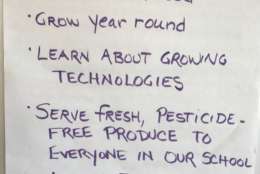 • GROW YEAR ROUND
• LEARN ABOUT GROWING
TECHNOLOGIES
• SERVE FRESH, PESTICIDE-
FREE PRODUCE TO
EVERYONE IN OUR SCHOOL